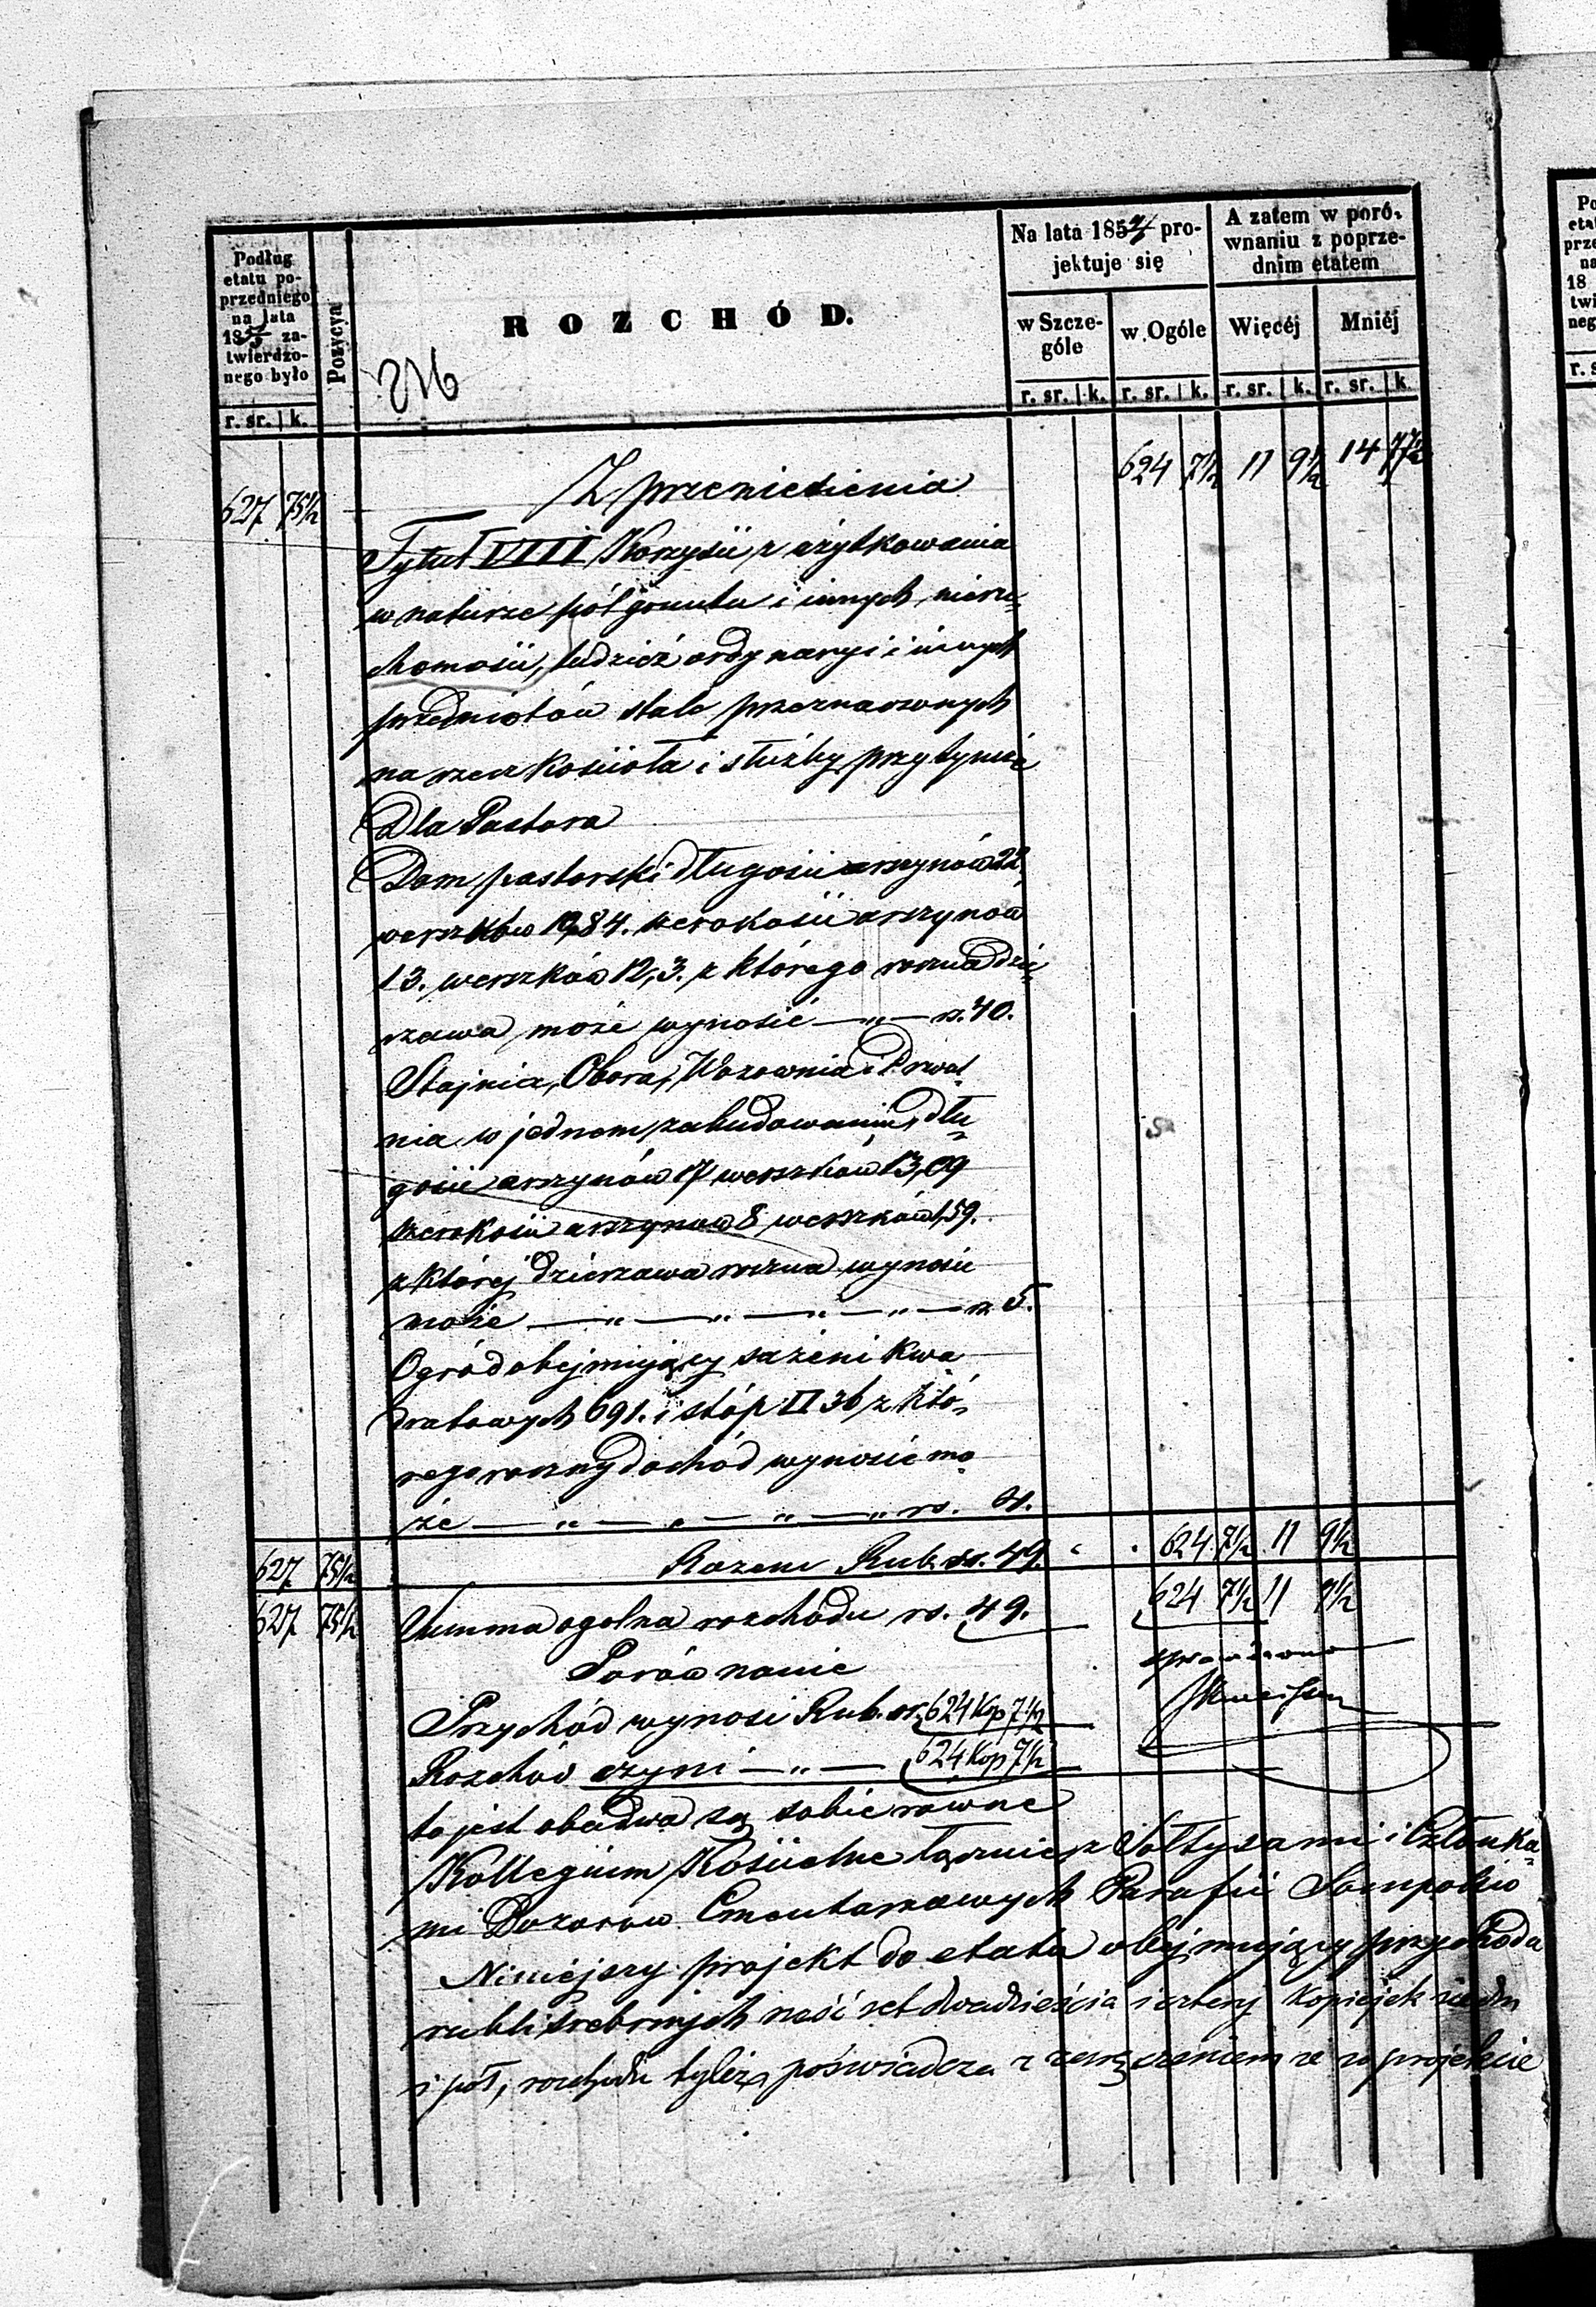 Podług
etatu po-
przedniego
na lata
18 za-
twierdzo-
nego było
r. sr. k.
Pozycya
ROZCHÓD.
Na lata 185 pro-
jektuje się
w Szcze-
góle
w Ogóle
r. sr. k. r. sr. k.
A zatem w poró-
wnaniu z poprze-
dnim etatem
Więcéj
Mniéj
r. sr. k. r. sr. k.
627 75½ Z przeniesienia 624 7½ 11 9½ 14 77½
Tytuł VIII Korzyści z użytkowania
w naturze pół gruntu i innych nieru-
chomości, tudzież ordynaryi i innych
przedmiotów stale przeznaczonych
na rzecz Kościoła i służby przy tymże
Dla Pastora
Dom pastorski długości arszynów 22
werszków 10,84. szerokości arszynów
13. werszków 12,3. z którego roczna dzier-
zawa może wynosić — „ — rs. 40.
Stajnia, Obora, Wozownia i Drwal-
nia w jednem zabudowaniu, dłu-
gości arszynów 17 werszków 13,09
szerokości arszynów 8 werszków 1,59.
z której dzierzawa roczna wynosić
może — „ — „ — „ — „ — rs. 5.
Ogród obejmujący sażeni kwa
dratowych 691. i stóp □ 36 z któ-
rego roczny dochód wynosić mo
że — „ — „ — „ — „ rs. 4.
627 75½ Razem Rub. sr. 49. 624 7½ 11 9½
627 75½ Summa ogolna rozchodu rs. 49. 624 7½ 11 9½
Porównanie
sprawdzono
Przychód wynosi Rub. sr. 624 Kop 7½
Rozchód czyni — „ — 624 Kop 7½
to jest obadwa są sobie równe
Kollegium Kościelne łącznie z Sołtysami i Członka-
mi Dozorów Cmentarzowych Parafii Sompolno
Niniejszy projekt do etatu obejmujący przychodu
rubli srebrnych sześć set dwadzieścia i cztery kopiejek siedm
i pół, rozchodu tyleż, poświadcza z zaręczeniem że w projekcie